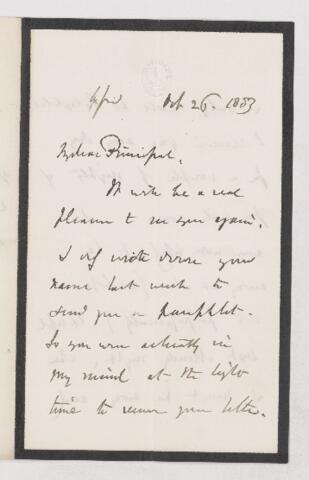 Oxfd Oct 26. 1883
My dear Principal,
It will be a real
pleasure to see you again.
I only wrote down your
name last week to
send you a pamphlet.
So you were actually in
my mind at the right
time to receive your letter.